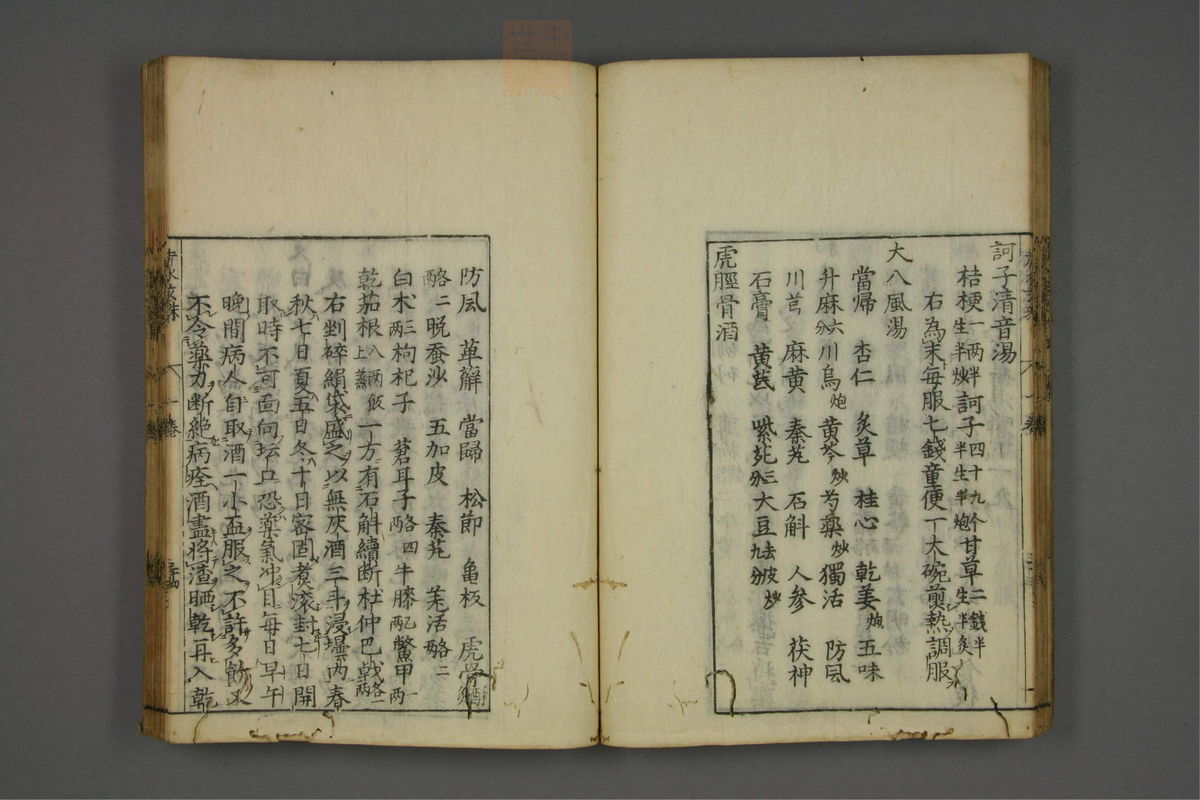 訶子清音湯
桔梗一両半生半炒訶子四十九个半生半炮甘草二錢半生半炙
右為末每服七錢童便一大碗煎熱調服
大八風湯
當歸 杏仁 炙草 桂心 乾姜炮 五味
升麻六分川烏炮黄芩炒芍藥炒獨活 防風
川芎 麻黄 秦艽 石斛 人參 茯神
石膏 黄芪 紫菀三分大豆去皮炒九分
虎脛骨酒
防風 萆薢 當歸 松節 亀板 虎骨酒炙
各二両晚蚕沙 五加皮 秦艽 羌活各二両
白朮三両枸杞子 蒼耳子各四両牛膝両鱉甲一両
乾茄根八両飯上蒸一方有石斛續断杜仲巴戟各一両
右剉碎絹袋盛之以無灰酒三斗浸壜内春
秋七日夏五日冬十日密固煮滚封七日開
取時不可面向坛口恐藥氣冲目每日早午
晚間病人自取酒一小盃服之不許多飲
不令藥力断絶病痊酒盡將渣晒乾再入乾